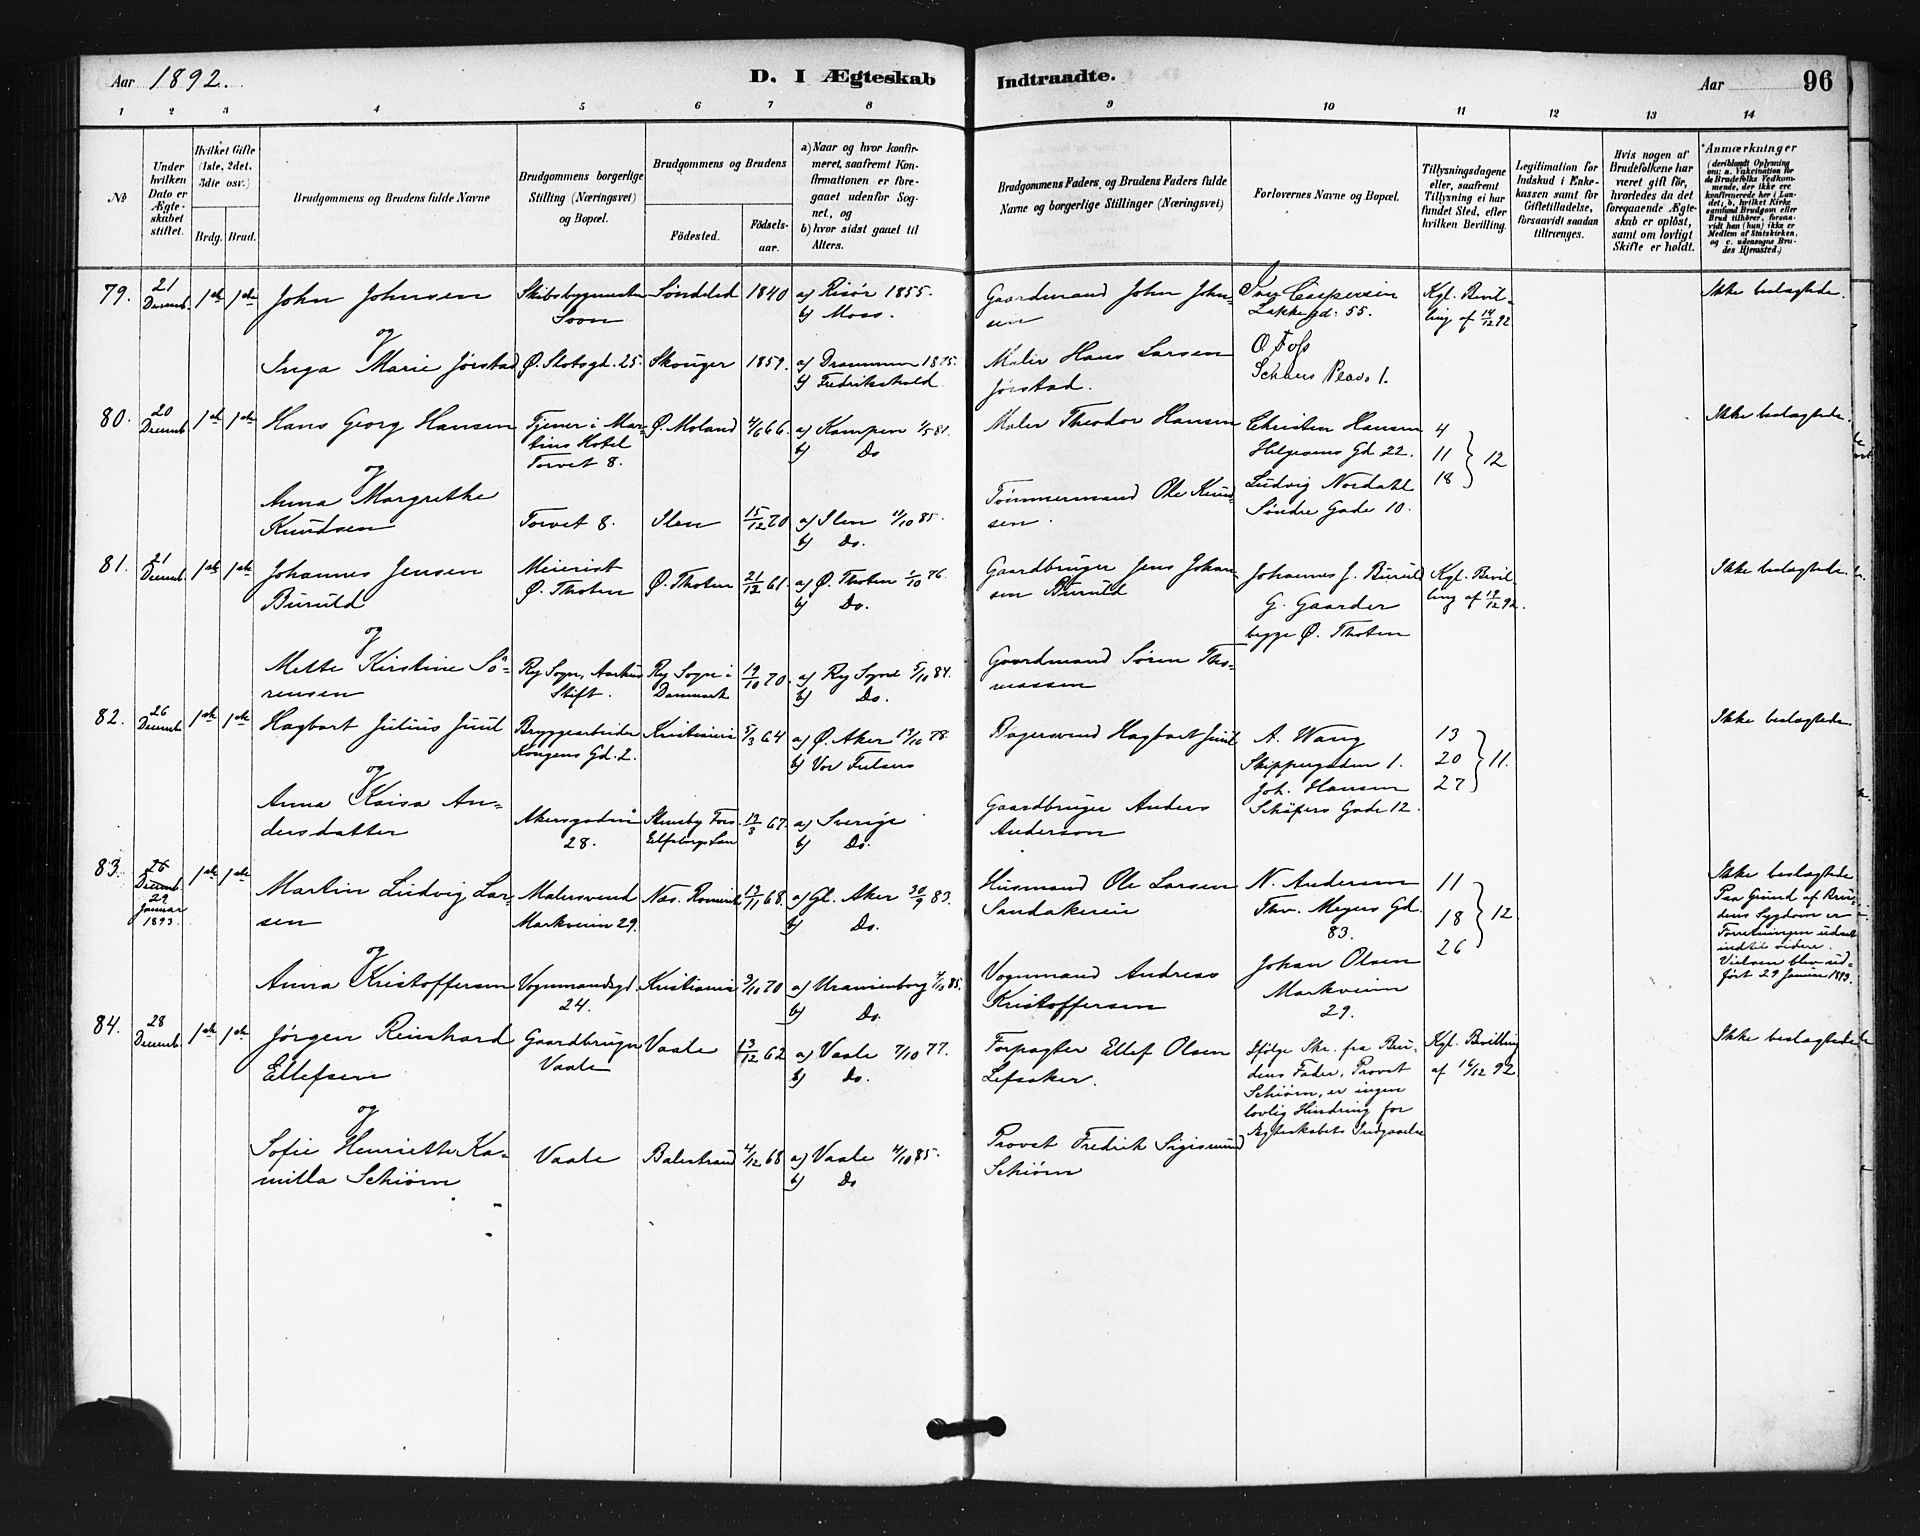 Aar 1892.
D. I Ægteskab
1 2 3 4 5 6 7 8
No
Under hvilken Dato er Ægteskabet stiftet.
Hvilket Gifte (1ste, 2det, 3die osv.)
Brdg. Brud.
Brudgommens og Brudens fulde Navne
Brudgommens borgerlige Stilling (Næringsvei) og Bopæl.
Brudgommens og Brudens
Fødested.
Fødselsaar.
a) Naar og hvor konfirmeret, saafremt Konfirmationen er foregaaet udenfor Sognet, og
b) hvor sidst gaaet til Alters.
79. 21 Decemb. 1ste 1ste John Johnsen Skibsbygmester Søndeled 1840 a) Risør 1855.
Soon b) Moss.
og
Inga Marie Jørstad Ø. Slotsgd. 25. Skouger 1859. a) Drammen 1875.
b) Fredrikshald.
80. 20 Decemb. 1ste 1ste Hans Georg Hansen Tjener i Martins Hotel Ø. Moland 4/6 66. a) Kampen 1/5 81.
Torvet 8. b) Do
og
Anna Margrethe
Knudsen Torvet 8. Ilen 15/12 70 a) Ilen 4/10 85.
b) Do.
81. 21 Decemb. 1ste 1ste Johannes Jensen Meierist Ø. Thoten 21/12 61. a) Ø. Thoten 1/10 76.
Buruld Ø. Thoten b) Do.
og
Mette Kirstine Sørensen Ry Sogn, Aarhus Stift. Ry Sogn i Danmark 19/10 70. a) Ry Sogn 5/10 84.
b) Do.
82. 26 Decemb. 1ste 1ste Hagbart Julius Juul Bryggearbeider Kristiania 5/3 64 a) Ø. Aker 13/10 78.
Kongens Gd. 2. b) Vor Frelsers
og
Anna Kaisa Andersdatter Akersgaden 28. Elfsborgs Län 19/3 67. a) Sverige
b) Do.
83. 26 Decemb. 29 Januar 1893. 1ste 1ste Martin Ludvig Larsen Malersvend Næs. Romerike 13/11 68. a) Gl. Aker 30/9 83.
Markveien 29. b) Do.
og
Anna Kristoffersen Vognmandsgd 24. Kristiania 9/10 70 a) Uranienborg 4/10 85.
b) Do.
84. 28 Decemb. 1ste 1ste Jørgen Reinhard Gaardbruger Vaale 13/12 62 a) Vaale 7/10 77.
Ellefsen Vaale b) Do.
og
Sofie Henriette Kamilla Schiørn Vaale Balestrand 4/12 68 a) Vaale 4/10 85.
b) Do
Indtraadte.
Aar 96
9 10 11 12 13 14
Brudgommens Faders og Brudens Faders fulde Navne og borgerlige Stillinger (Næringsvei)
Forlovernes Navne og Bopæl.
Tillysningsdagene eller, saafremt Tillysning ei har fundet Sted, efter hvilken Bevilling.
Legitimation for Indskud i Enkekassen samt for Giftetilladelse, forsaavidt saadan tiltrænges.
Hvis nogen af Brudefolkene har været gift før, hvorledes da det foregaaende Ægteskab er opløst, samt om lovligt Skifte er holdt.
Anmærkninger
(deriblandt Oplysning om: a. Vakcination for de Brudefolks Vedkommende, der ikke ere konfirmerede her i Landet; b. hvilket Kirkesamfund Brudgom eller Brud tilhører, forsaavidt han (hun) ikke er Medlem af Statskirken, og c. udensogns Brudes Hjemsted.)
Gaardmand John Johnsen Iver Caspersen Kgl. Bevilling af 14/12 92 Ikke beslægtede.
Lakkegd. 55.
Maler Hans Larsen O Foss
Jørstad. Schous Plads 1.
Maler Theodor Hansen Christen Hansen 4 Ikke beslægtede.
Helgesens Gd 22. 11 } 12
Tømmermand Ole Knudsen Ludvig Nordahl 18
Søndre Gade 10.
Gaardbruger Jens Johansen Buruld Johannes J. Buruld Kgl. Bevilling af 19/12 92. Ikke beslægtede.
G. Gaarder
begge Ø. Thoten
Gaardmand Søren Thomassen
Bagersvend Hagbart Juul A. Wang 13 Ikke beslægtede.
Skippergaden 1. 20 } 11.
Joh. Hansen 27
Gaardbruger Anders Schäfers Gade 12.
Anderson
Husmand Ole Larsen N. Andersen 11 Ikke beslægtede
Sandakereie Thv. Meyers Gd. 83. 18 } 12 Paa Grund af Brudens Sygdom er
26 Forretningen udsat
indtil videre.
Vielsen blev udført 29 Januar 1893.
Vognmand Andreas Johan Olsen
Kristoffersen Markveien 29.
Forpagter Ellef Olsen Ifølge Skr. fra Brudens Fader, Provst Kgl. Bevilling Ikke beslægtede
Lefsaker. Schiørn, er ingen af 16/12 92.
lovlig Hindring for
Ægteskabets Indgaaelse
Provst Fredrik Sigismund
Schiørn